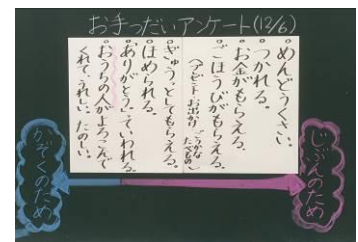 お手つだいアンケート(12/6)
めんどうくさい。
つかれる。
お金がもらえる。
ごほうびがもらえる。
(プレゼント お出かけ ごうかな たべもの)
ぎゅうっとしてもらえる。
ほめられる。
ありがとうっていわれる。
おうちの人がよろこんで
くれて、うれしい、たのしい。
じぶんのため
かぞくのため